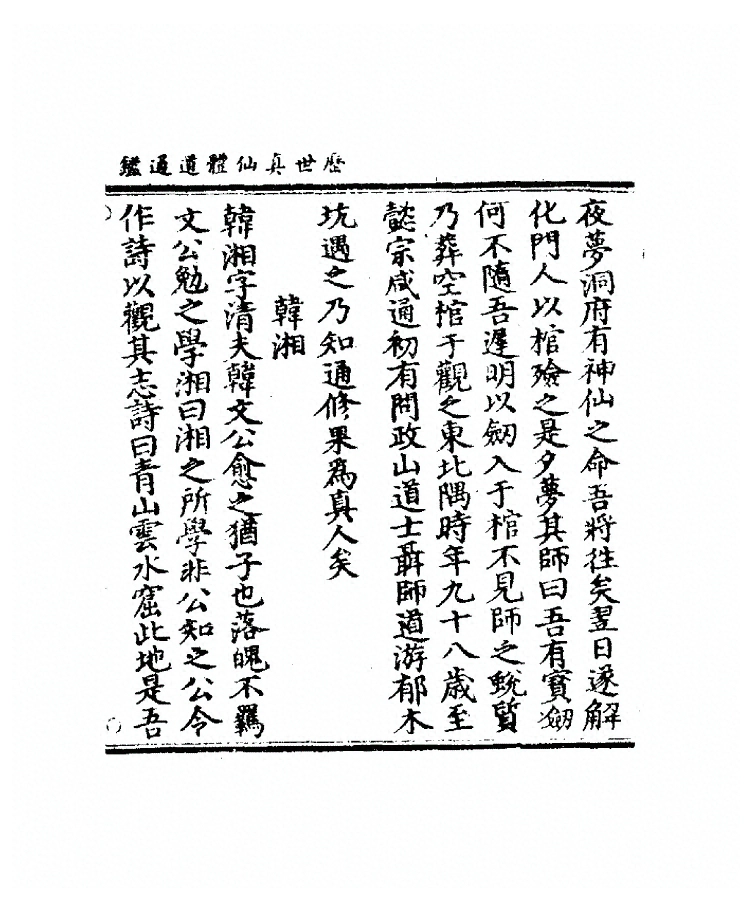 歷世真仙體道通鑑
夜夢洞府有神仙之命吾將徃矣翌日遂解
化門人以棺殮之是夕夢其師曰吾有寶劒
何不隨吾遲明以劒入于棺不見師之蛻質
乃葬空棺于觀之東北隅時年九十八歲至
懿宗咸通初有問政山道士聶師道游郁木
坑遇之乃知通修果為真人矣
韓湘
韓湘字清夫韓文公愈之猶子也落魄不羈
文公勉之學湘曰湘之所學非公知之公令
作詩以觀其志詩曰青山雲水窟此地是吾